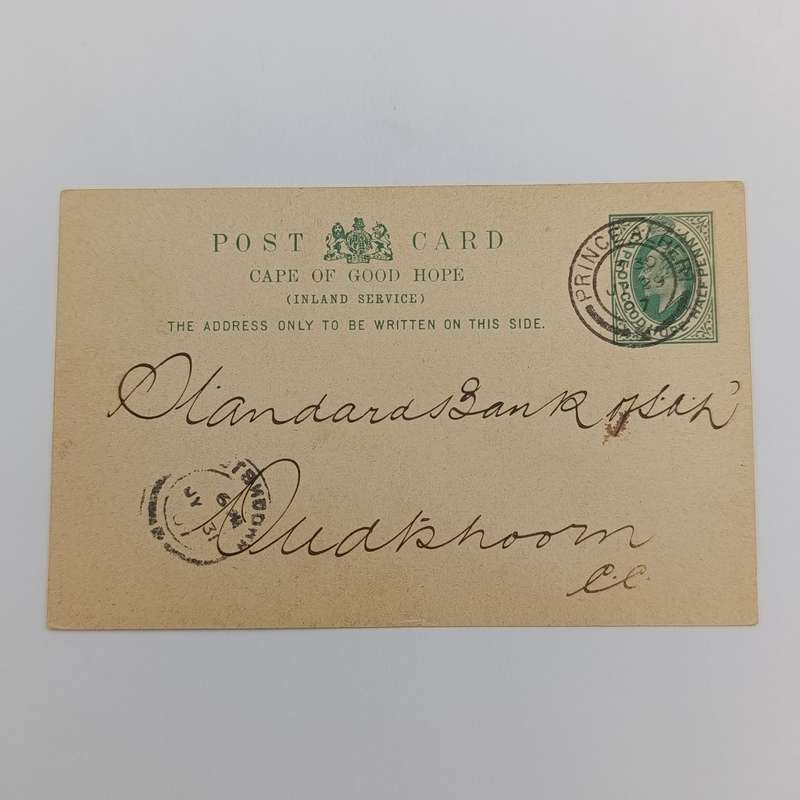 POST CARD
CAPE OF GOOD HOPE
(INLAND SERVICE)
THE ADDRESS ONLY TO BE WRITTEN ON THIS SIDE.
PRINCE ALBERT
29
7
HALF PENNY
Standard Bank of S.A. Ld
OUDTSHOORN
JY 31
Oudtshoorn
C.C.